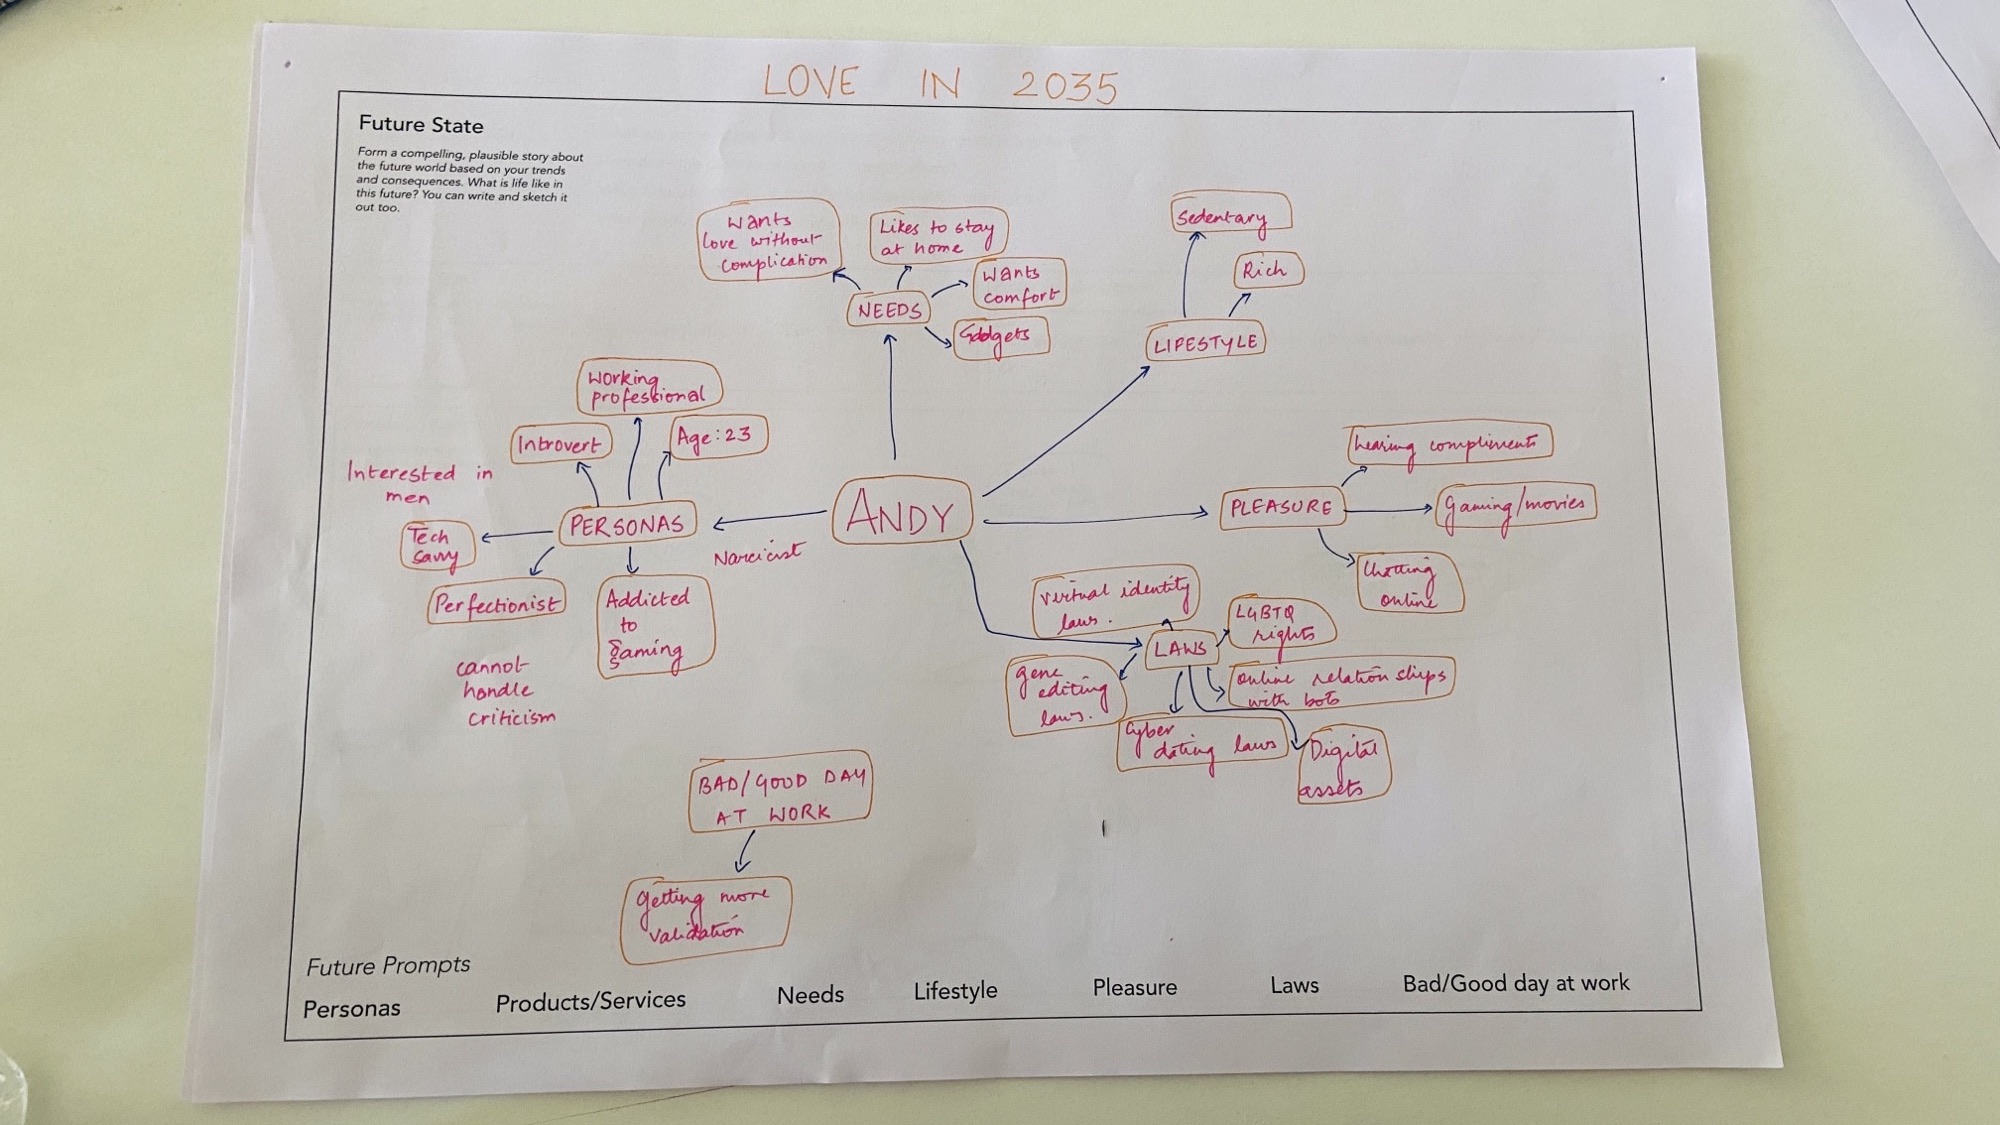 LOVE IN 2035
Future State
Form a compelling, plausible story about
the future world based on your trends
and consequences. What is life like in
this future? You can write and sketch it
out too.
Wants
love without
complication
Likes to stay
at home
Wants
comfort
Gadgets
NEEDS
Sedentary
Rich
LIFESTYLE
Working
professional
Introvert
Age: 23
Interested in
men
Tech
savvy
PERSONAS
Perfectionist
Addicted
to
gaming
cannot
handle
criticism
Narcicist
ANDY
PLEASURE
hearing compliments
Gaming/movies
Chatting
online
virtual identity
laws.
LGBTQ
rights
LAWS
gene
editing
laws.
online relationships
with bots
Cyber
dating laws
Digital
assets
BAD/GOOD DAY
AT WORK
Getting more
validation
Future Prompts
Personas
Products/Services
Needs
Lifestyle
Pleasure
Laws
Bad/Good day at work